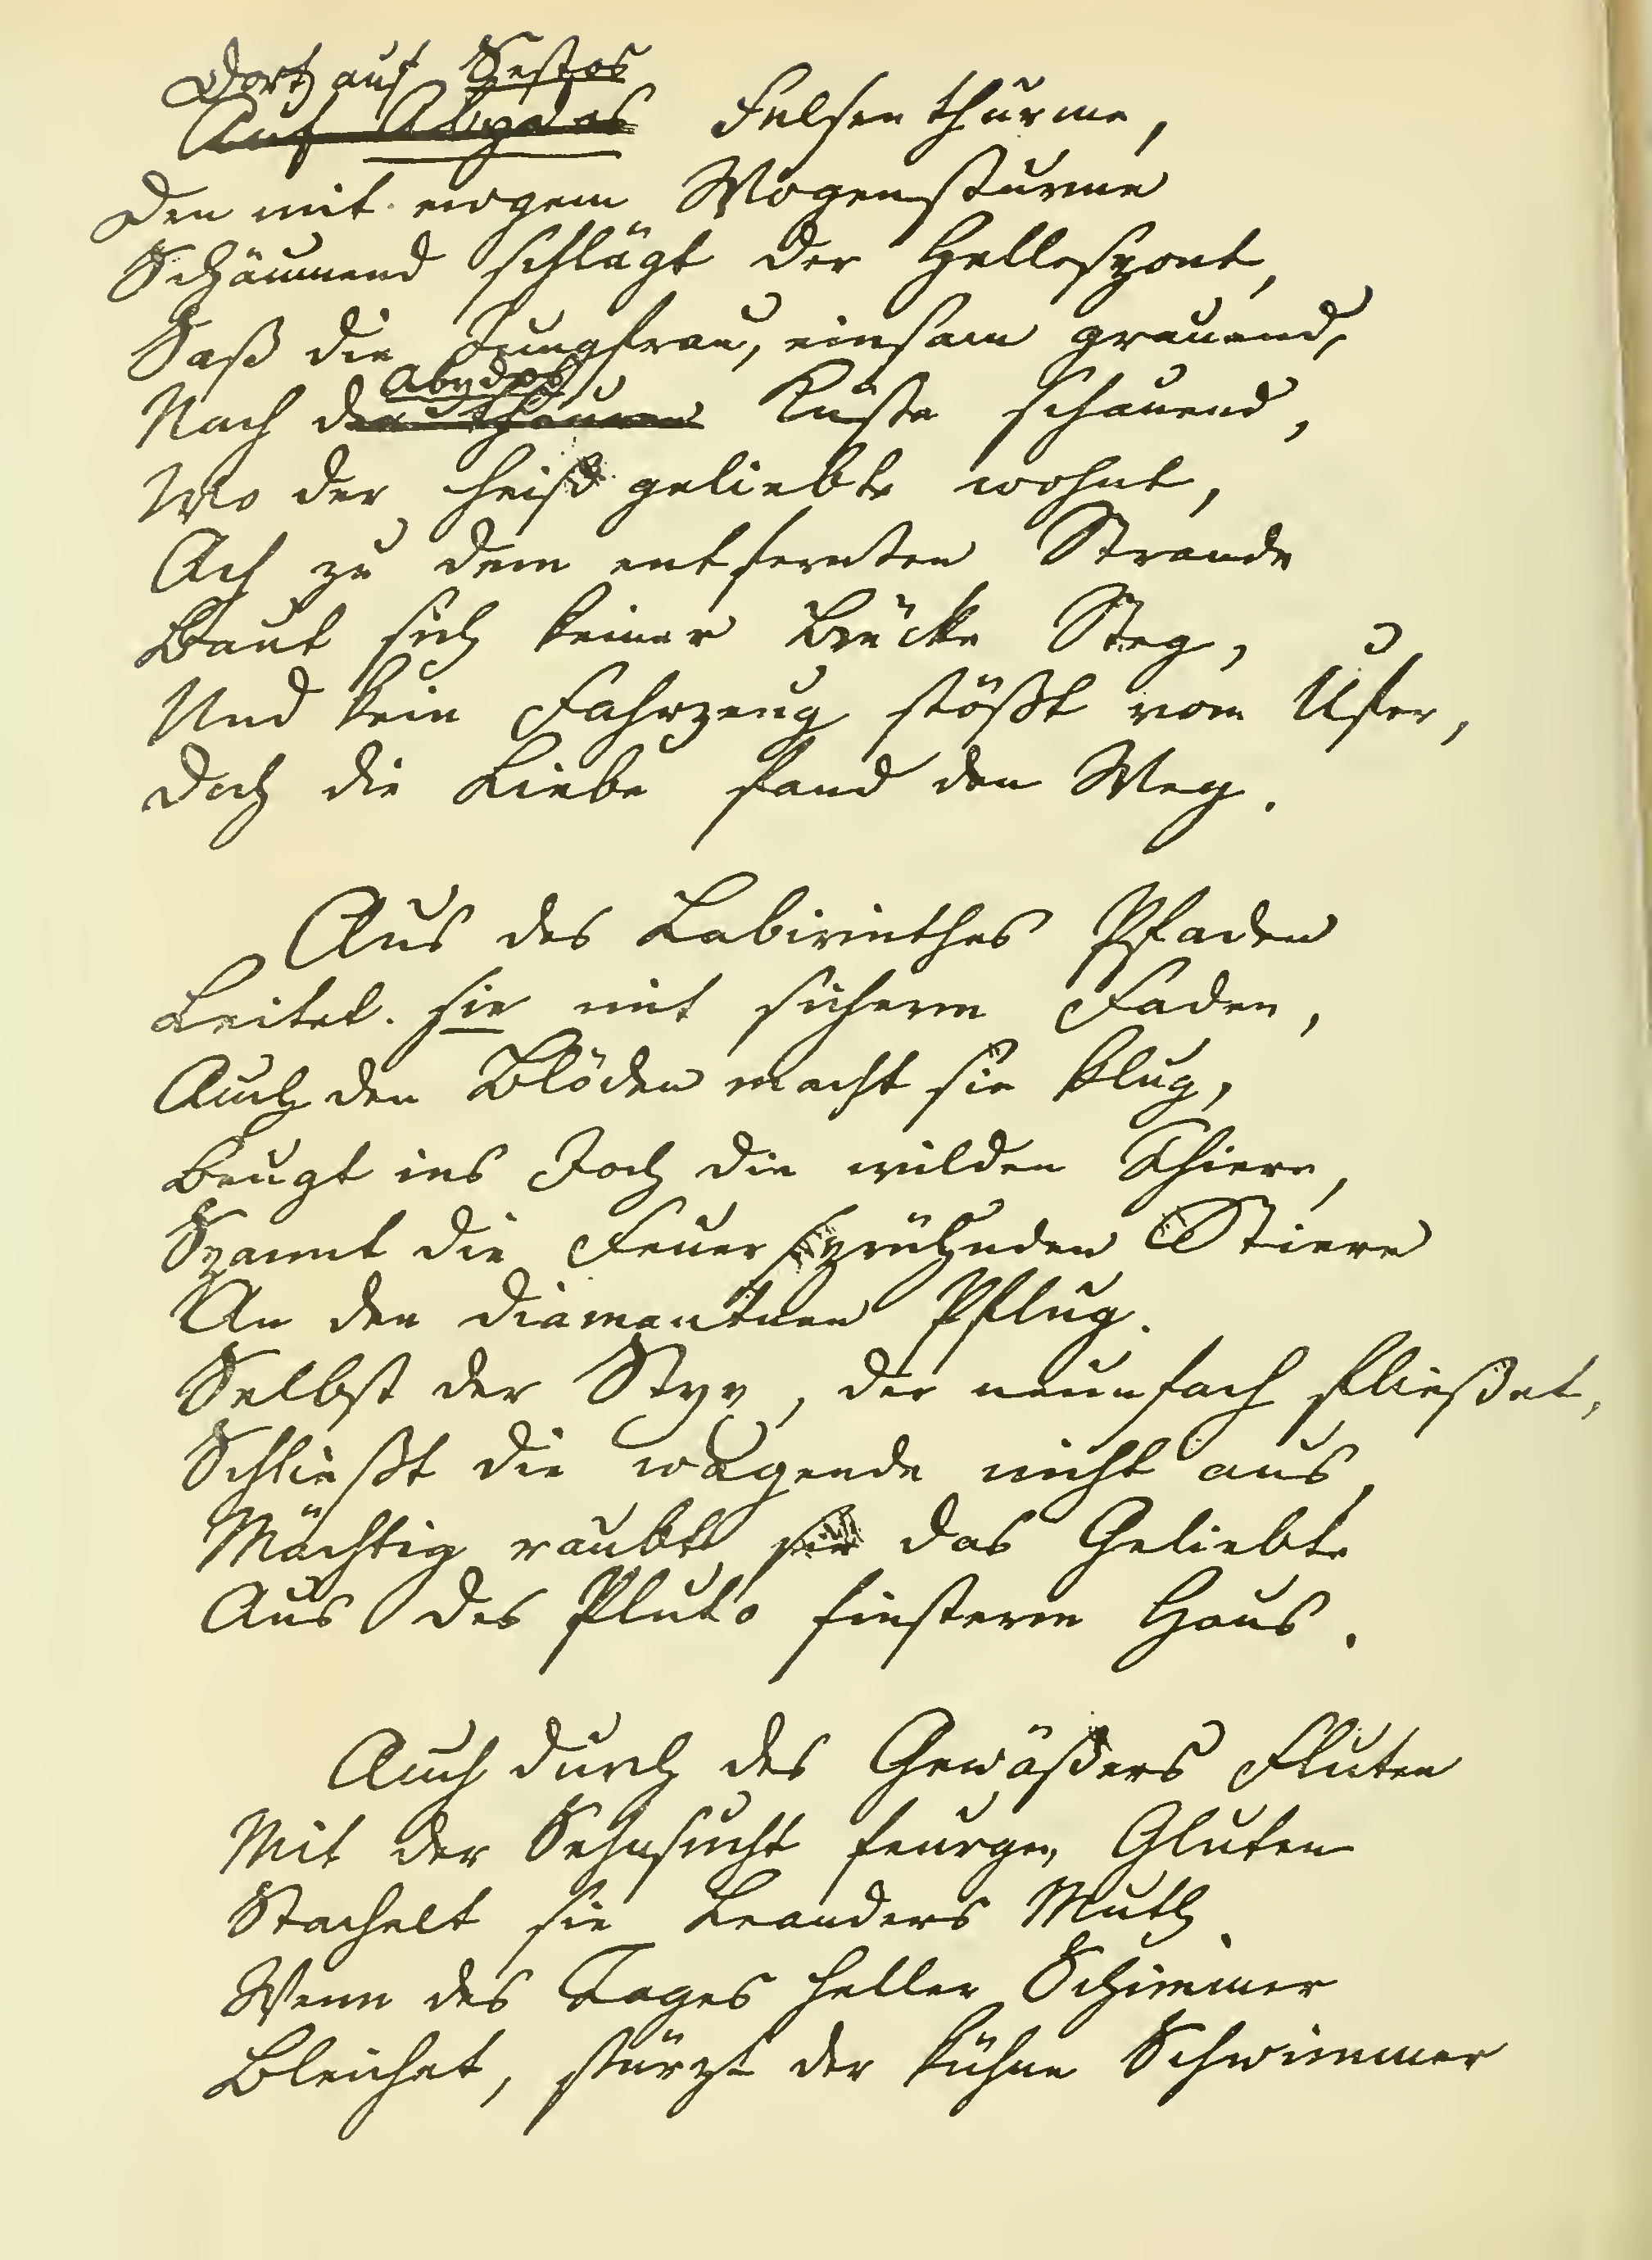 Dort auf Sestos
Auf Abydos Felsenthurme,
Den mit ewgem Wogensturme
Schäumend schlägt der Hellespont,
Saß die Jungfrau, einsam grauend,
Abydos
Nach der Küste schauend,
Wo der heißgeliebte wohnt,
Ach zu dem entfernten Strande
Baut sich keiner Brücke Steg,
Und kein Fahrzeug stößt vom Ufer,
Doch die Liebe fand den Weg.
Aus des Labirinthes Pfaden
Leitet sie mit sicherm Faden,
Auch den Blöden macht sie klug,
Beugt ins Joch die wilden Thiere,
Spannt die Feuersprühnden Stiere
An den diamantnen Pflug.
Selbst der Styx, der neunfach fließet,
Schließt die wagende nicht aus,
Mächtig raubt sie das Geliebte
Aus des Pluto finsterm Haus.
Auch durch des Gewäßers Fluten
Mit der Sehnsucht feurgen Gluten
Stachelt sie Leanders Muth,
Wenn des Tages heller Schimmer
Bleichet, stürzt der kühne Schwimmer